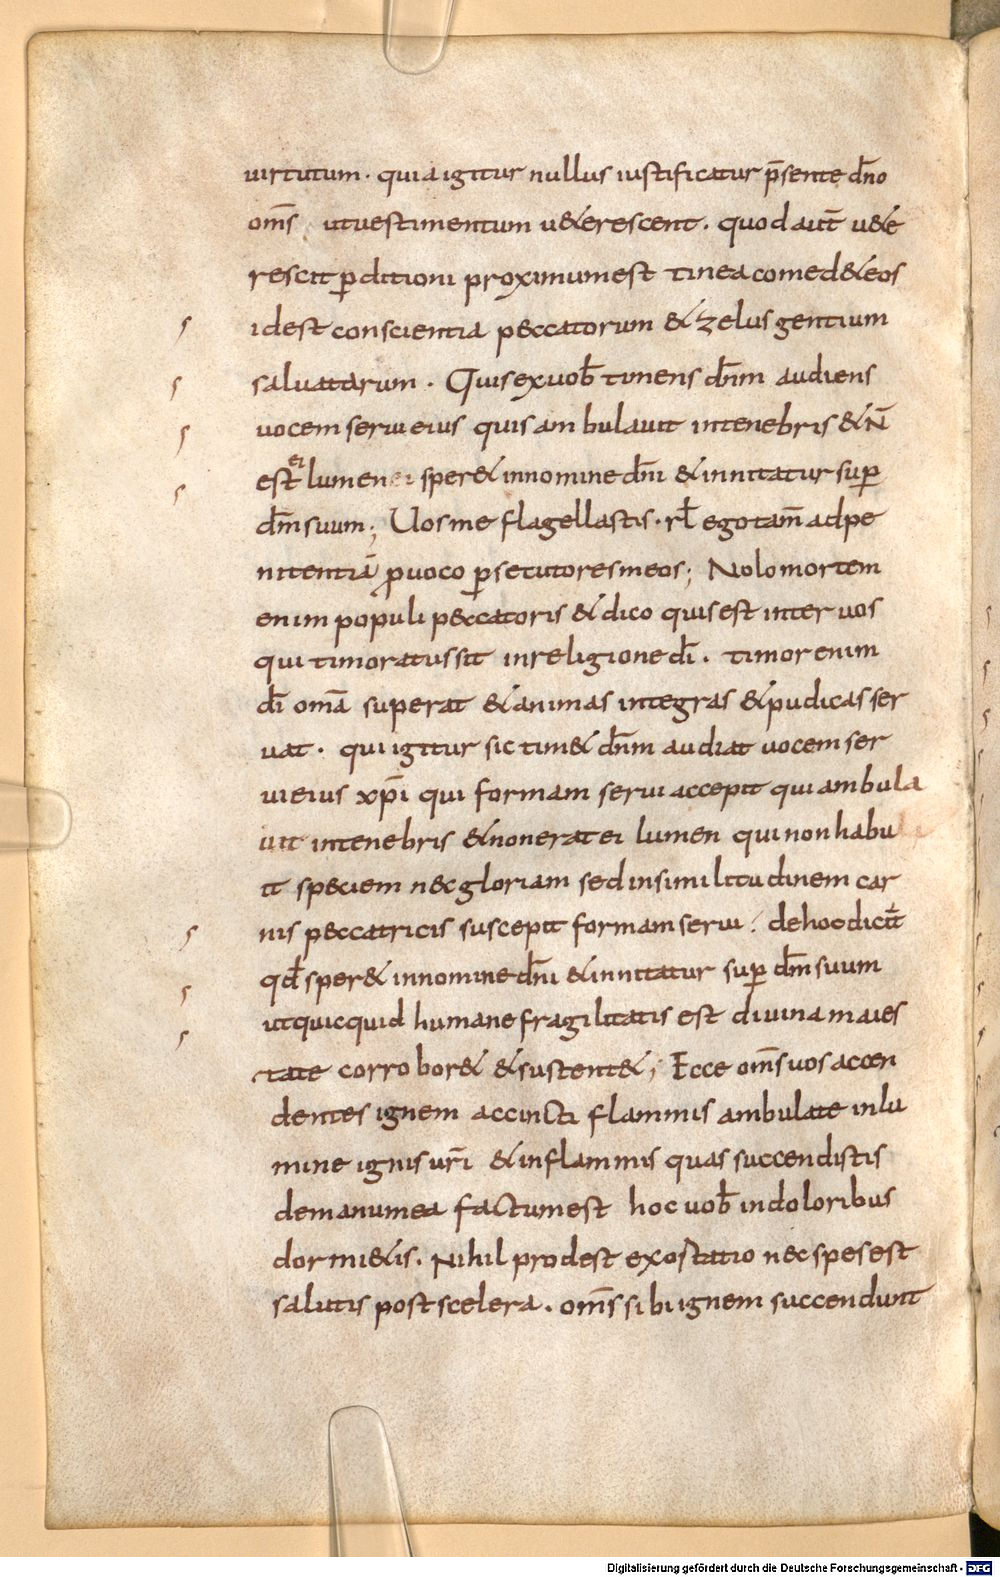 uirtutum · quia igitur nullus iustificatur p̄sente dn̄o
om̄s ut uestimentum u&erescent · quod aut̄ u&e
rescit ꝑditioni proximum est tinea comed& eos
id est conscientia peccatorum & zelus gentium
saluatarum · Quis ex uob̄ timens dn̄m audiens
uocem serui eius quis ambulauit in tenebris & N̄
est ei lumen sper& in nomine dn̄i & innitatur suꝑ
dm̄ suum ; Uos me flagellastis · rl̄ ego tam̄ ad pe
nitentiā ꝓuoco ꝑsecutores meos ; Nolo mortem
enim populi peccatoris & dico quis est inter uos
qui timoratus sit in religione dī · timor enim
dī om̄a superat & animas integras & pudicas ser
uat · qui igitur sic tim& dn̄m audiat uocem ser
ui eius xp̄i qui formam serui accepit qui ambula
uit in tenebris & non erat ei lumen qui non habu
it speciem nec gloriam sed in similitudinem car
nis peccatricis suscepit formam serui · de hoc dicit̄
qd̄ sper& in nomine dn̄i & innitatur suꝑ dm̄ suum
ut quicquid humane fragilitatis est diuina maies
tate corrobor& & sustent& ; Ecce om̄s uos accen
dentes ignem accincti flammis ambulate in lu
mine ignis ur̄i & in flammis quas succendistis
de manu mea factum est hoc uob̄ in doloribus
dormi&is · Nihil prodest exostatio nec spes est
salutis post scelera · om̄s sibi ignem succendunt
Digitalisierung gefördert durch die Deutsche Forschungsgemeinschaft - DFG